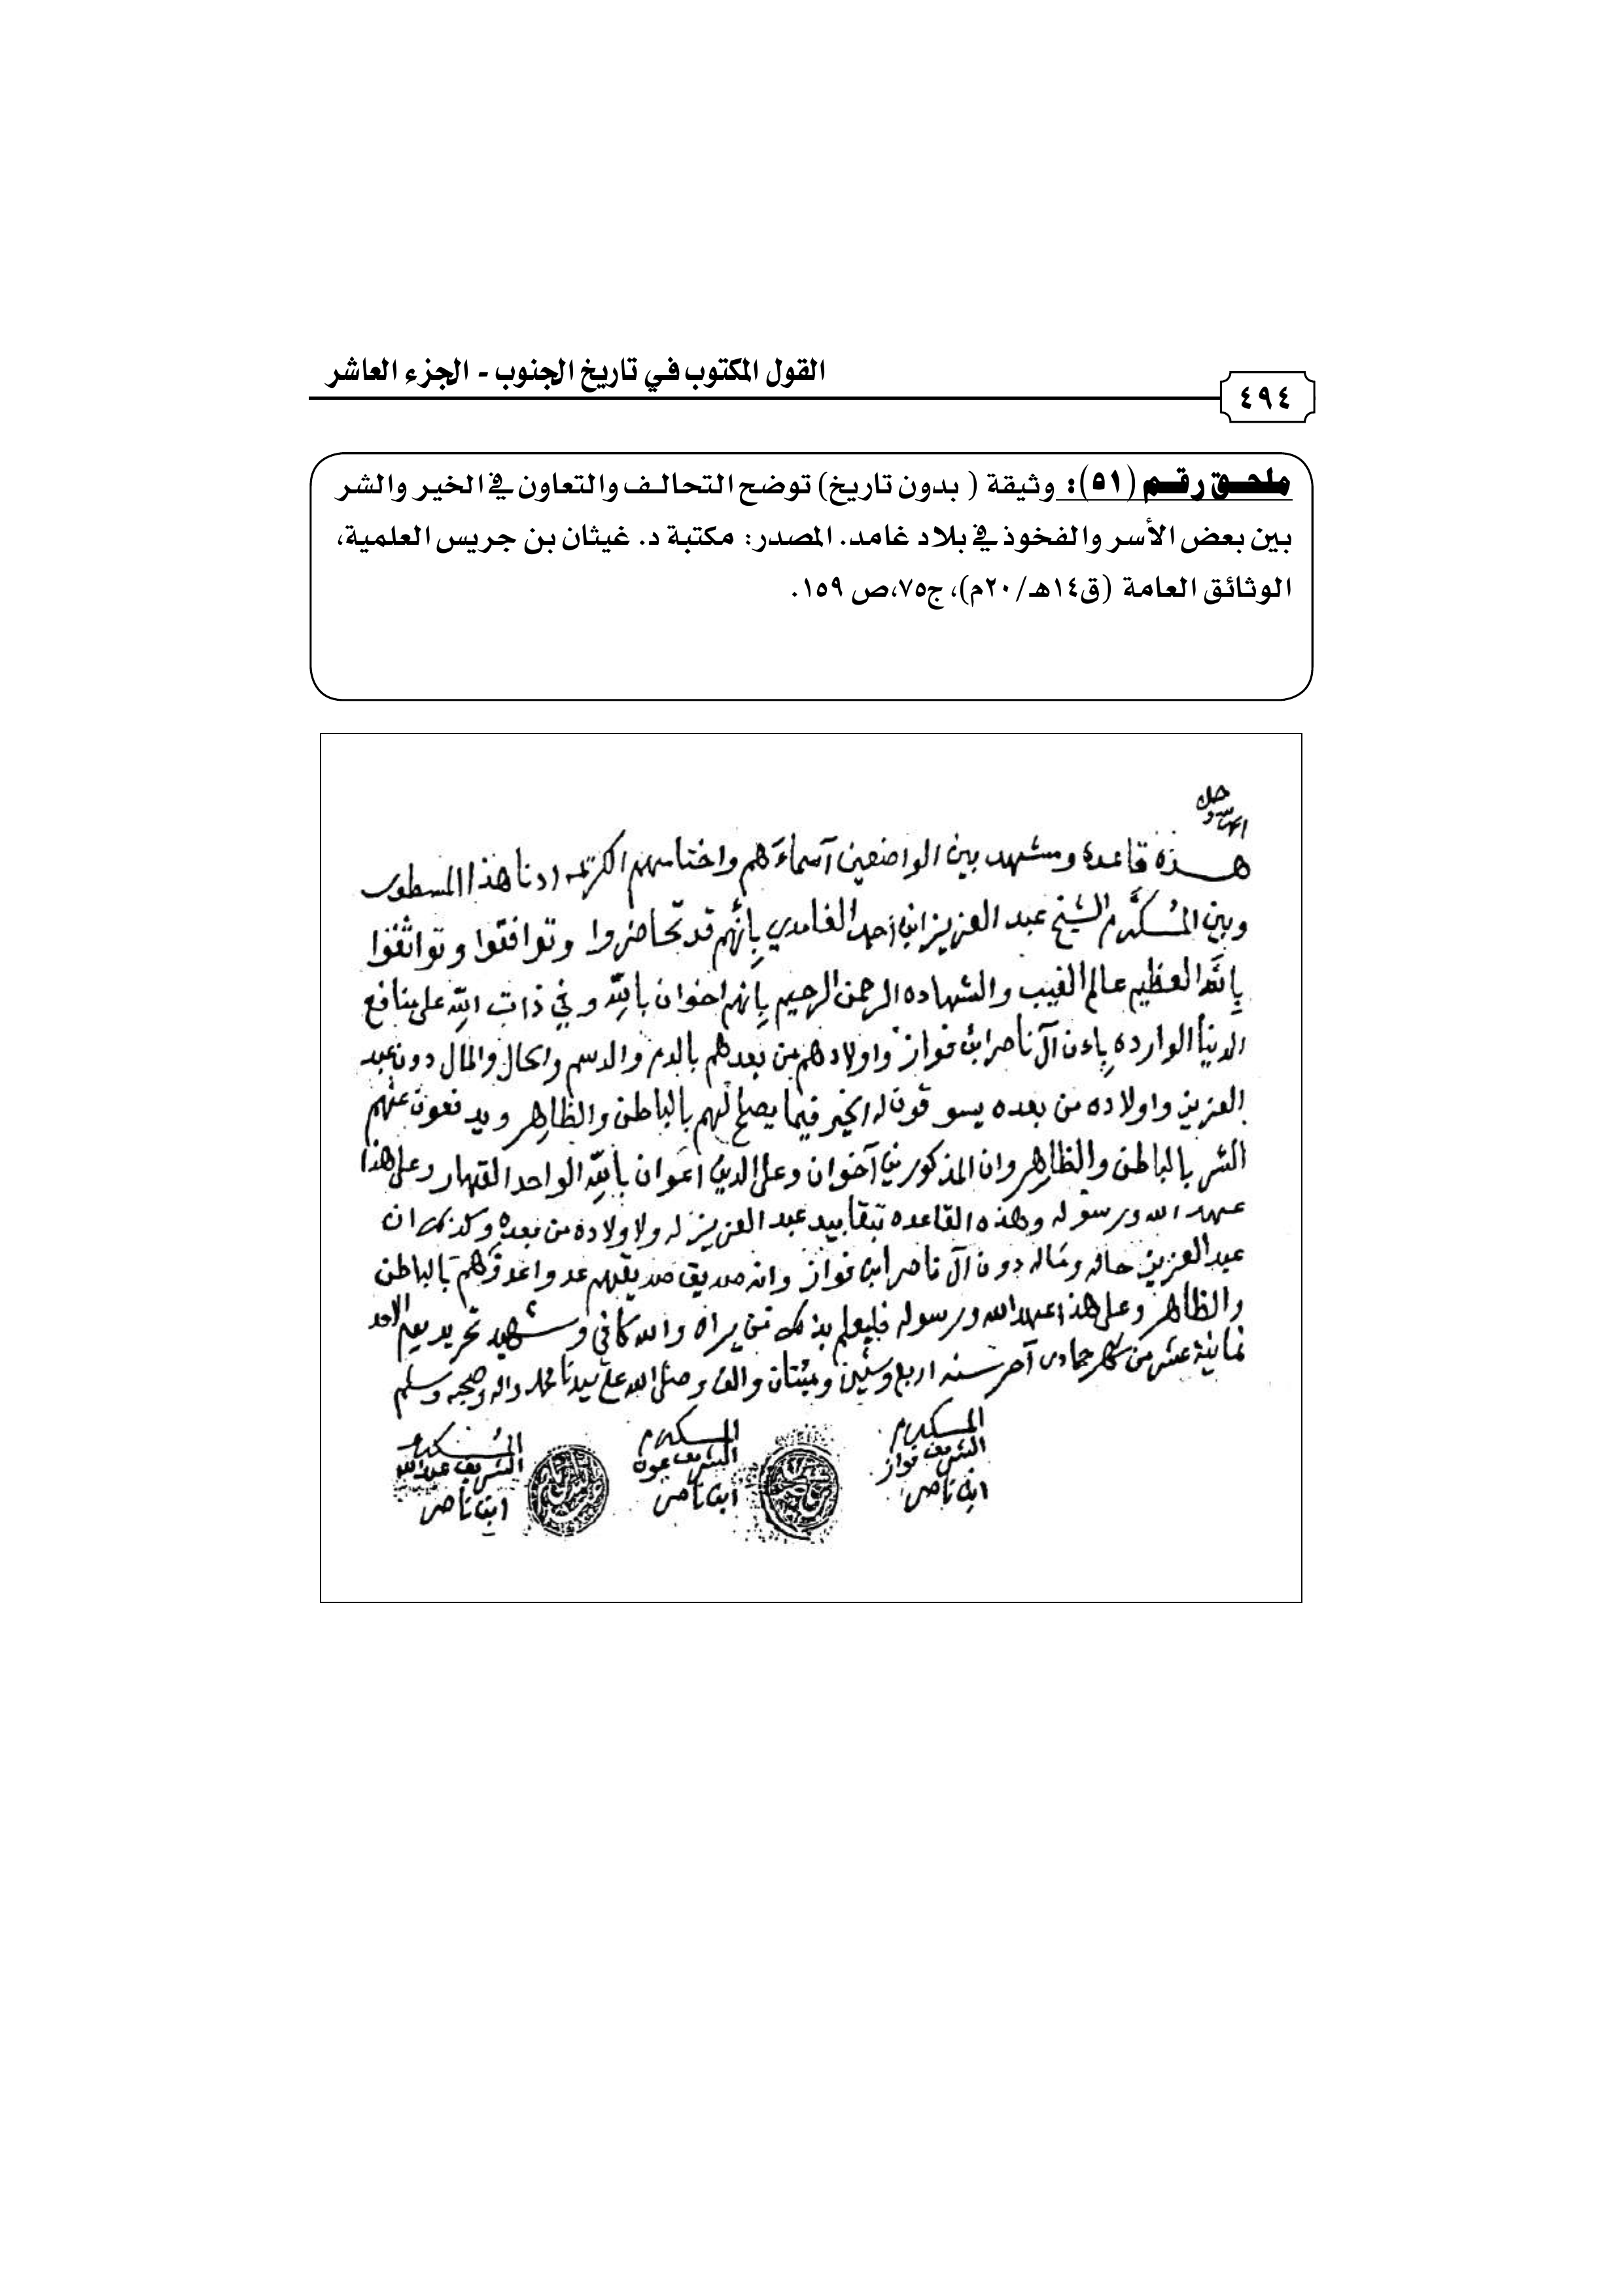 القول المكتوب في تاريخ الجنوب - الجزء العاشر
٤٩٤
ملحق رقم (٥١): وثيقة ( بدون تاريخ) توضح التحالف والتعاون في الخير والشر
بين بعض الأسر والفخوذ في بلاد غامد. المصدر: مكتبة د. غيثان بن جريس العلمية،
الوثائق العامة (ق١٤هـ/٢٠م)، ج٧٥،ص ١٥٩.
هذه قاعدة ومشهد بين الواضعين آسماءَهم واختامهم الكريمه ادنا هذا المسطور
وبين المُكَرم الشيخ عبد العزيز ابن احمد الغامدي بِانَّهم قد تحاضروا وتوافقوا وتواثقوا
بِاللَّه العظيم عالم الغيب والشهاده الرحمن الرحيم بِانهم اخوان باللّه وفي ذات اللّه على منافع
الدنيا الوارده بِاءن آل ناصر ابن فواز واولادهم من بعدهم بالدم والدسم والحال والمال دون عبد
العزيز واولاده من بعده يسوقون له الخير فيما يصلح لهم بالباطن والظاهر ويدفعون عنهم
الشر بالباطن والظاهر وان المذكورين آخوان وعلى الدين اعوان باللّه الواحد القهار وعلى هذا
عهد الله ورسوله وهذه القاعده تبقا بيد عبد العزيز له ولاولاده من بعده وكذلك ان
عبد العزيز حاله وماله دون آل ناصر ابن فواز وانه صديق صديقهم عدو اعدوهم بالباطن
والظاهر وعلى هذا عهد الله ورسوله فليعلم بذلك من يراه والله كافي وشهيد تحرير يوم الاحد
ثمانية عشر من شهر جمادى آخر سنه اربع وستين وميئتان والف وصلى الله على سيدنا محمد واله وصحبه وسلم
المكرم الشريف فواز ابن ناصر
المكرم الشريف عون ابن ناصر
المُكرم الشريف عبدالله ابن ناصر